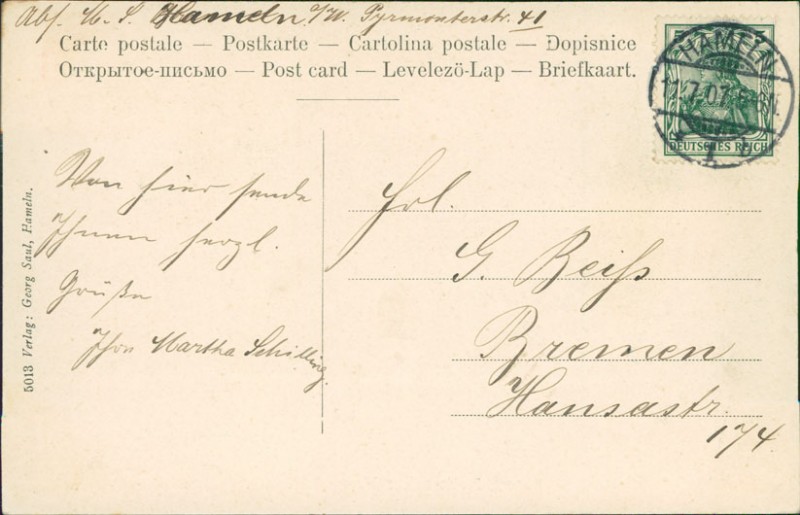 Abs. M. S. Hameln a/W. Pyrmonterstr. 41
Carte postale — Postkarte — Cartolina postale — Dopisnice
Открытое-письмо — Post card — Levelezö-Lap — Briefkaart.
DEUTSCHES REICH
HAMELN
11.7.07
Von hier sende
Ihnen herzl.
Grüße
Ihre Martha Schilling.
Frl.
G. Beiss
Bremen
Hansastr.
174.
5013 Verlag: Georg Saul, Hameln.